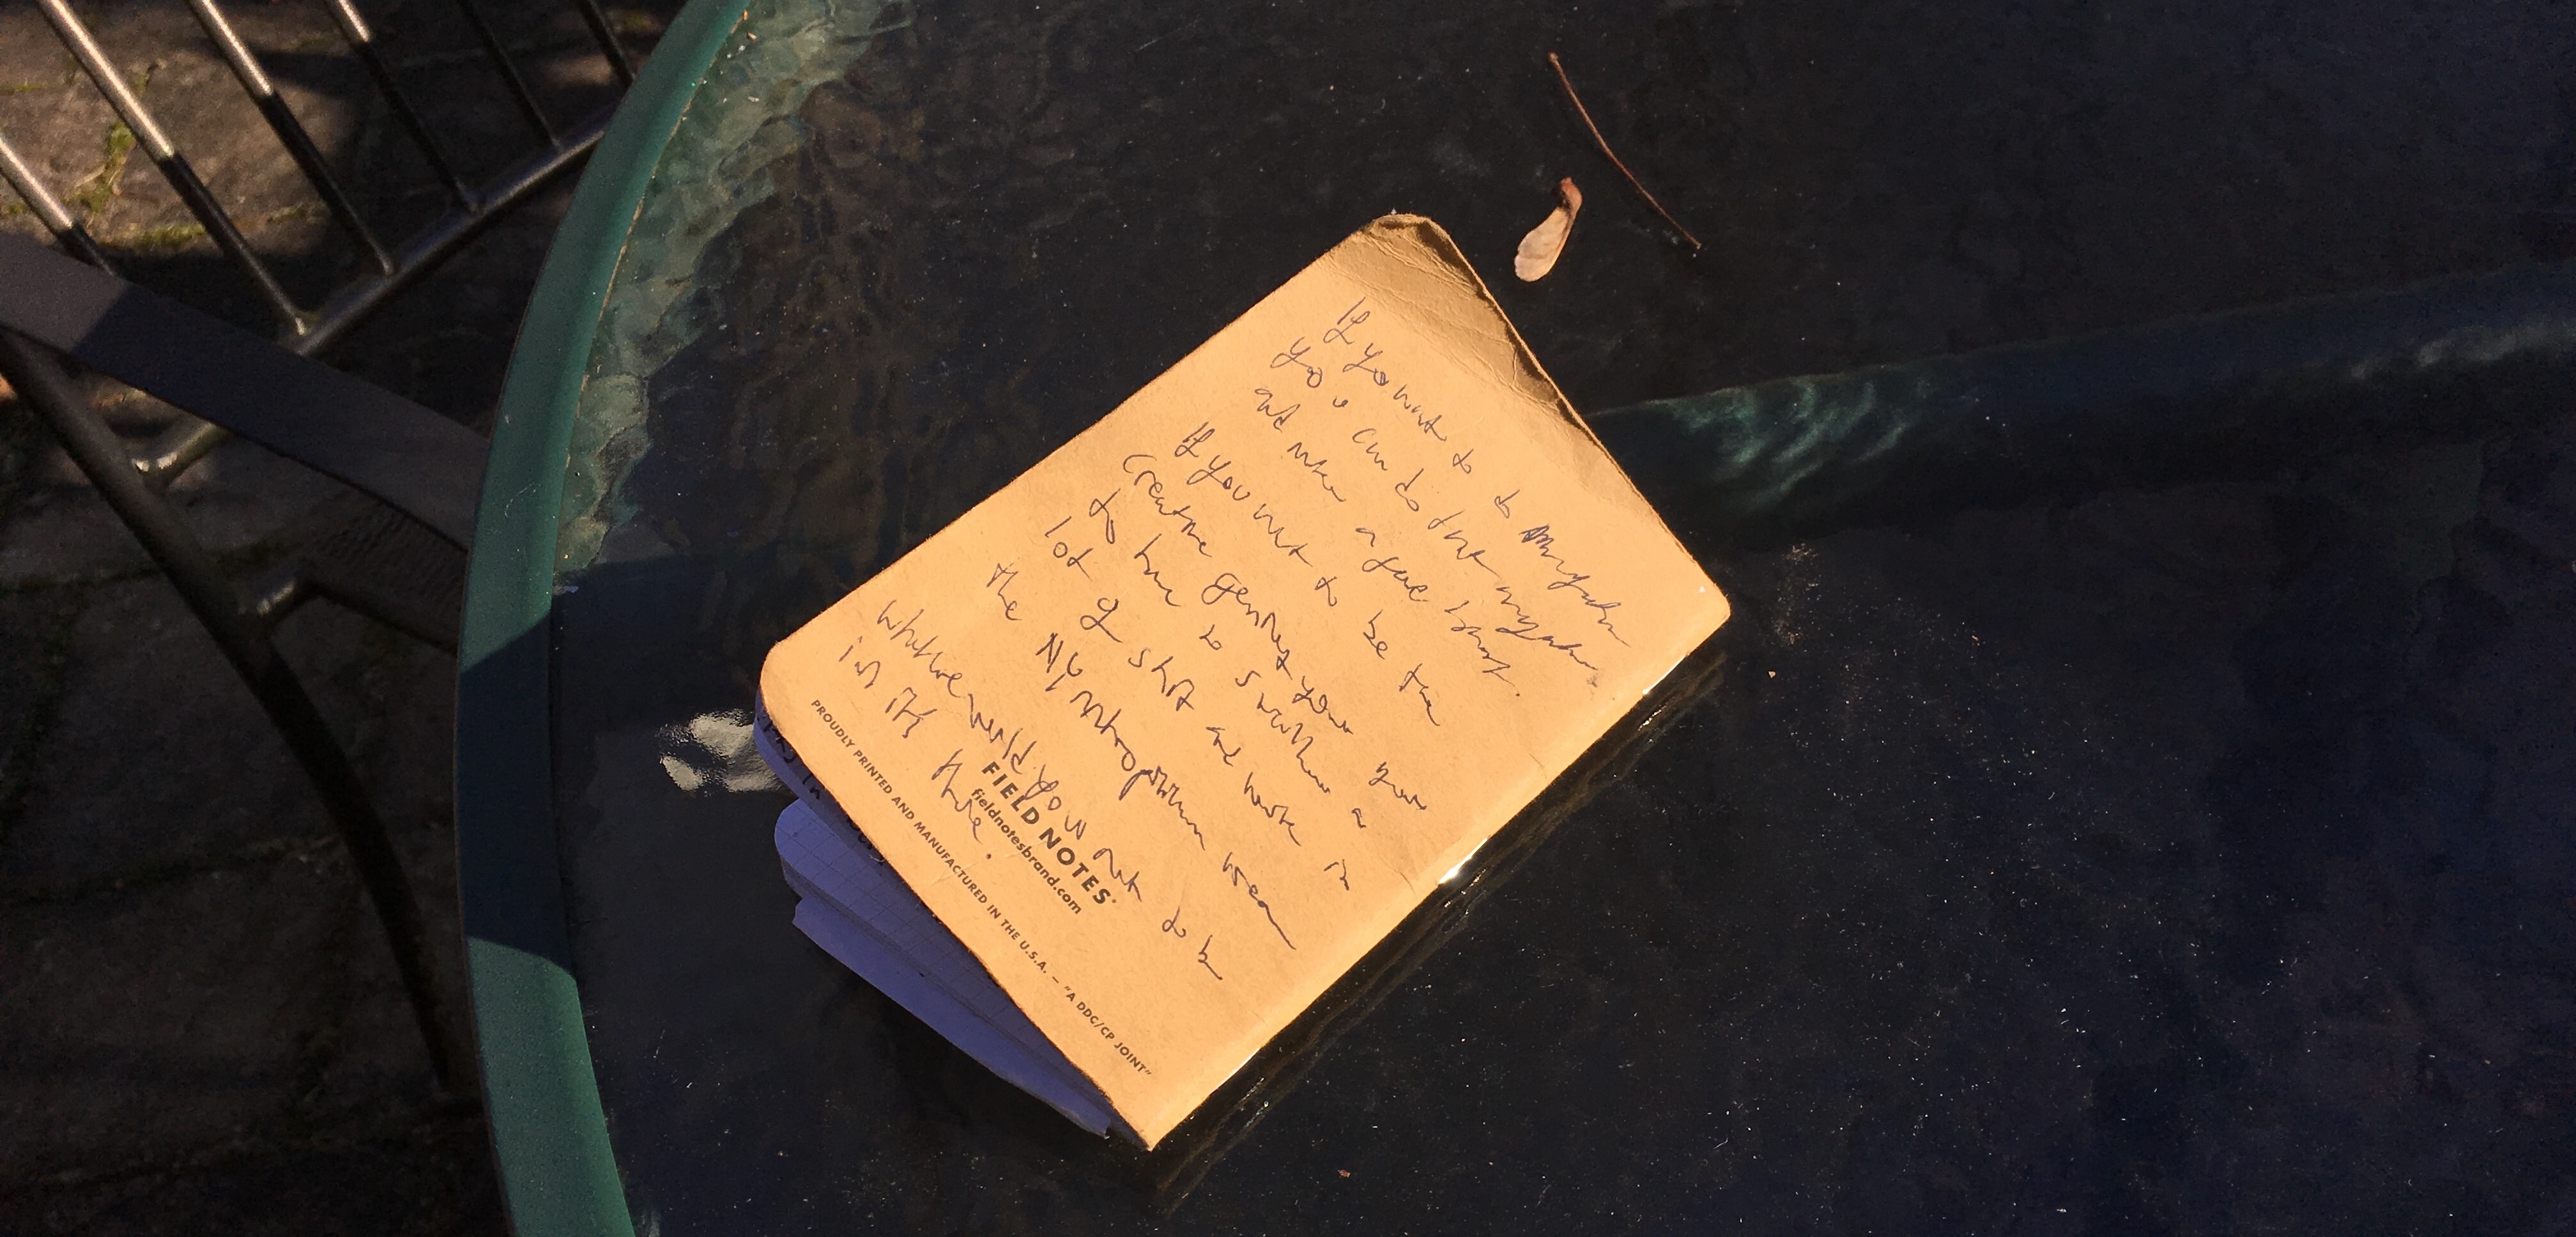 If you want to do anything
you can do that anything
and make a great
If you want to be the
creative genius you
to have to swallow a
lot of shit and work in
the NY Metropolitan area
whatever world you want to be
in it's there.
FIELD NOTES
fieldnotesbrand.com
PROUDLY PRINTED AND MANUFACTURED IN THE U.S.A. — "A DDC/CP JOINT"